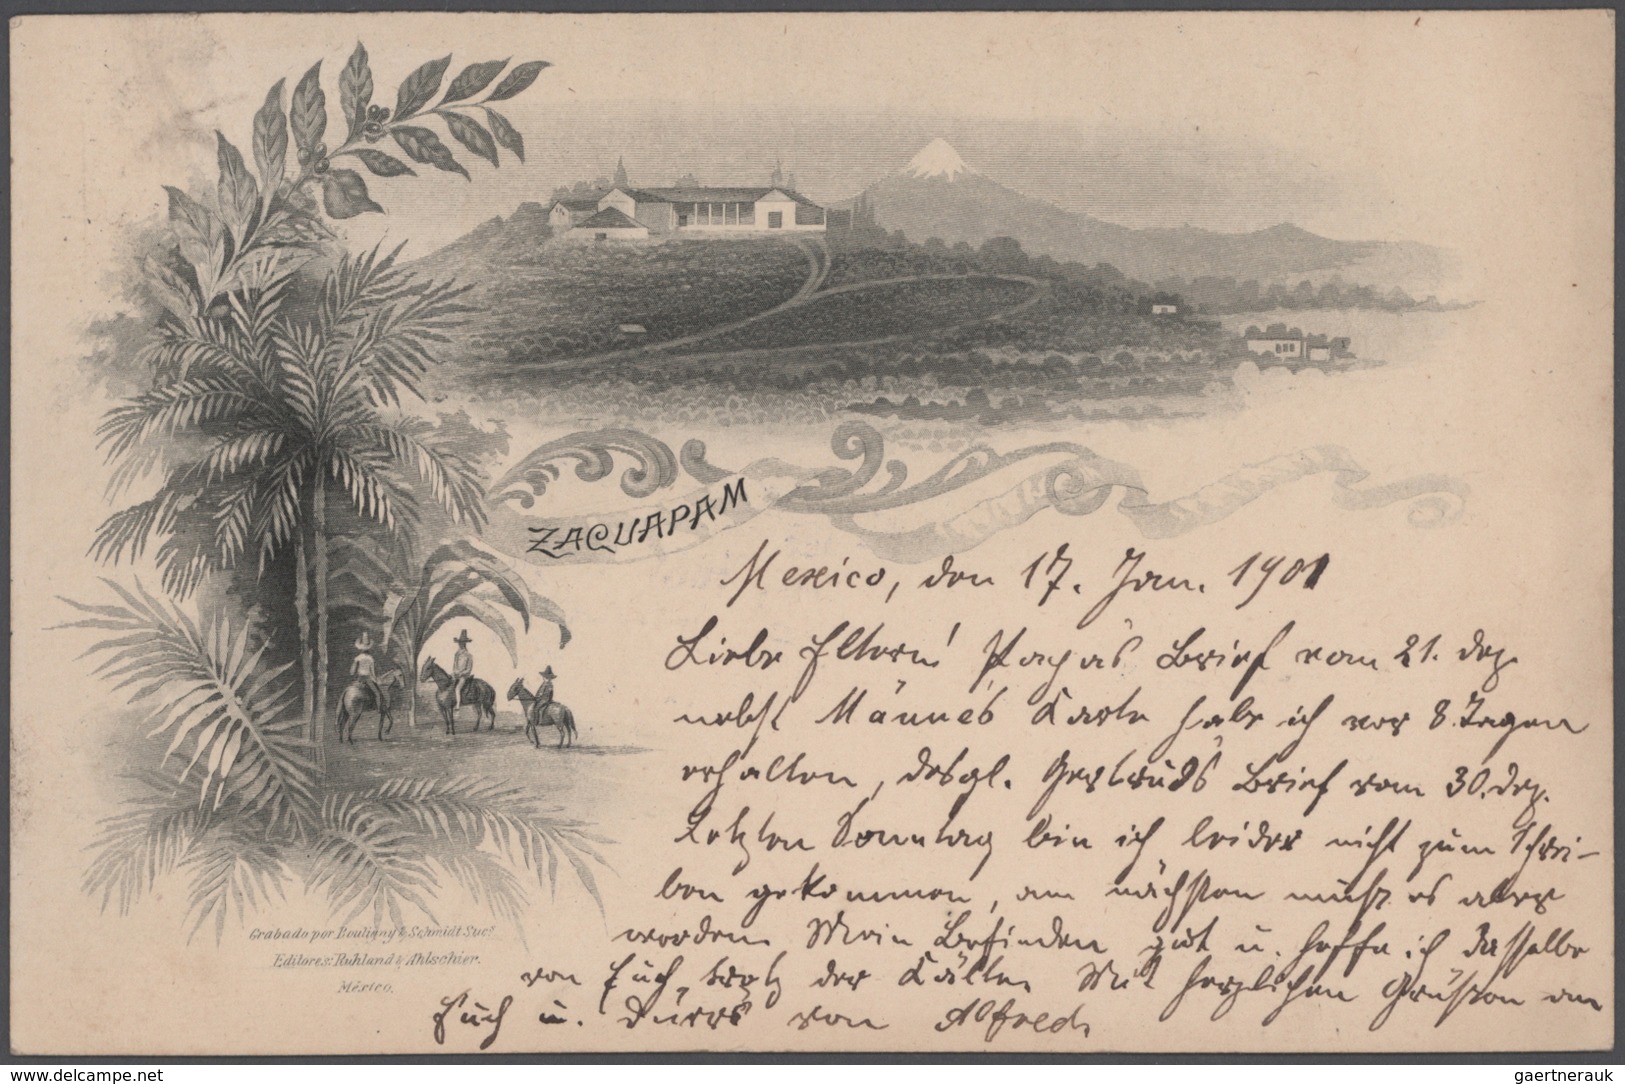 ZACUAPAM
Mexico, den 17. Jan. 1901
Liebe Eltern! Papas Brief vom 21. Dez.
nebst Karte habe ich vor 8 Tagen
erhalten, desgl. Gertruds Brief vom 30. Dez.
Letzten Sonntag bin ich leider nicht zum Schrei-
ben gekommen, am nächsten muß es aber
werden. Mein Befinden gut u. hoffe ich dasselbe
von Euch, trotz der Kälte. Mit herzlichen Grüßen an
Euch u. von Alfred.
Grabado por Bouligny & Schmidt Sucs.
Editores: Ruhland & Ahlschier.
México.
www.delcampe.net
gaertnerauk